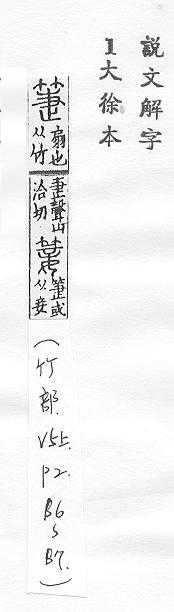 說文解字
1大徐本
箑 扇也从竹疌聲山洽切 𥯦 箑或从妾 (竹部. V5上. P2. B6~B7.)